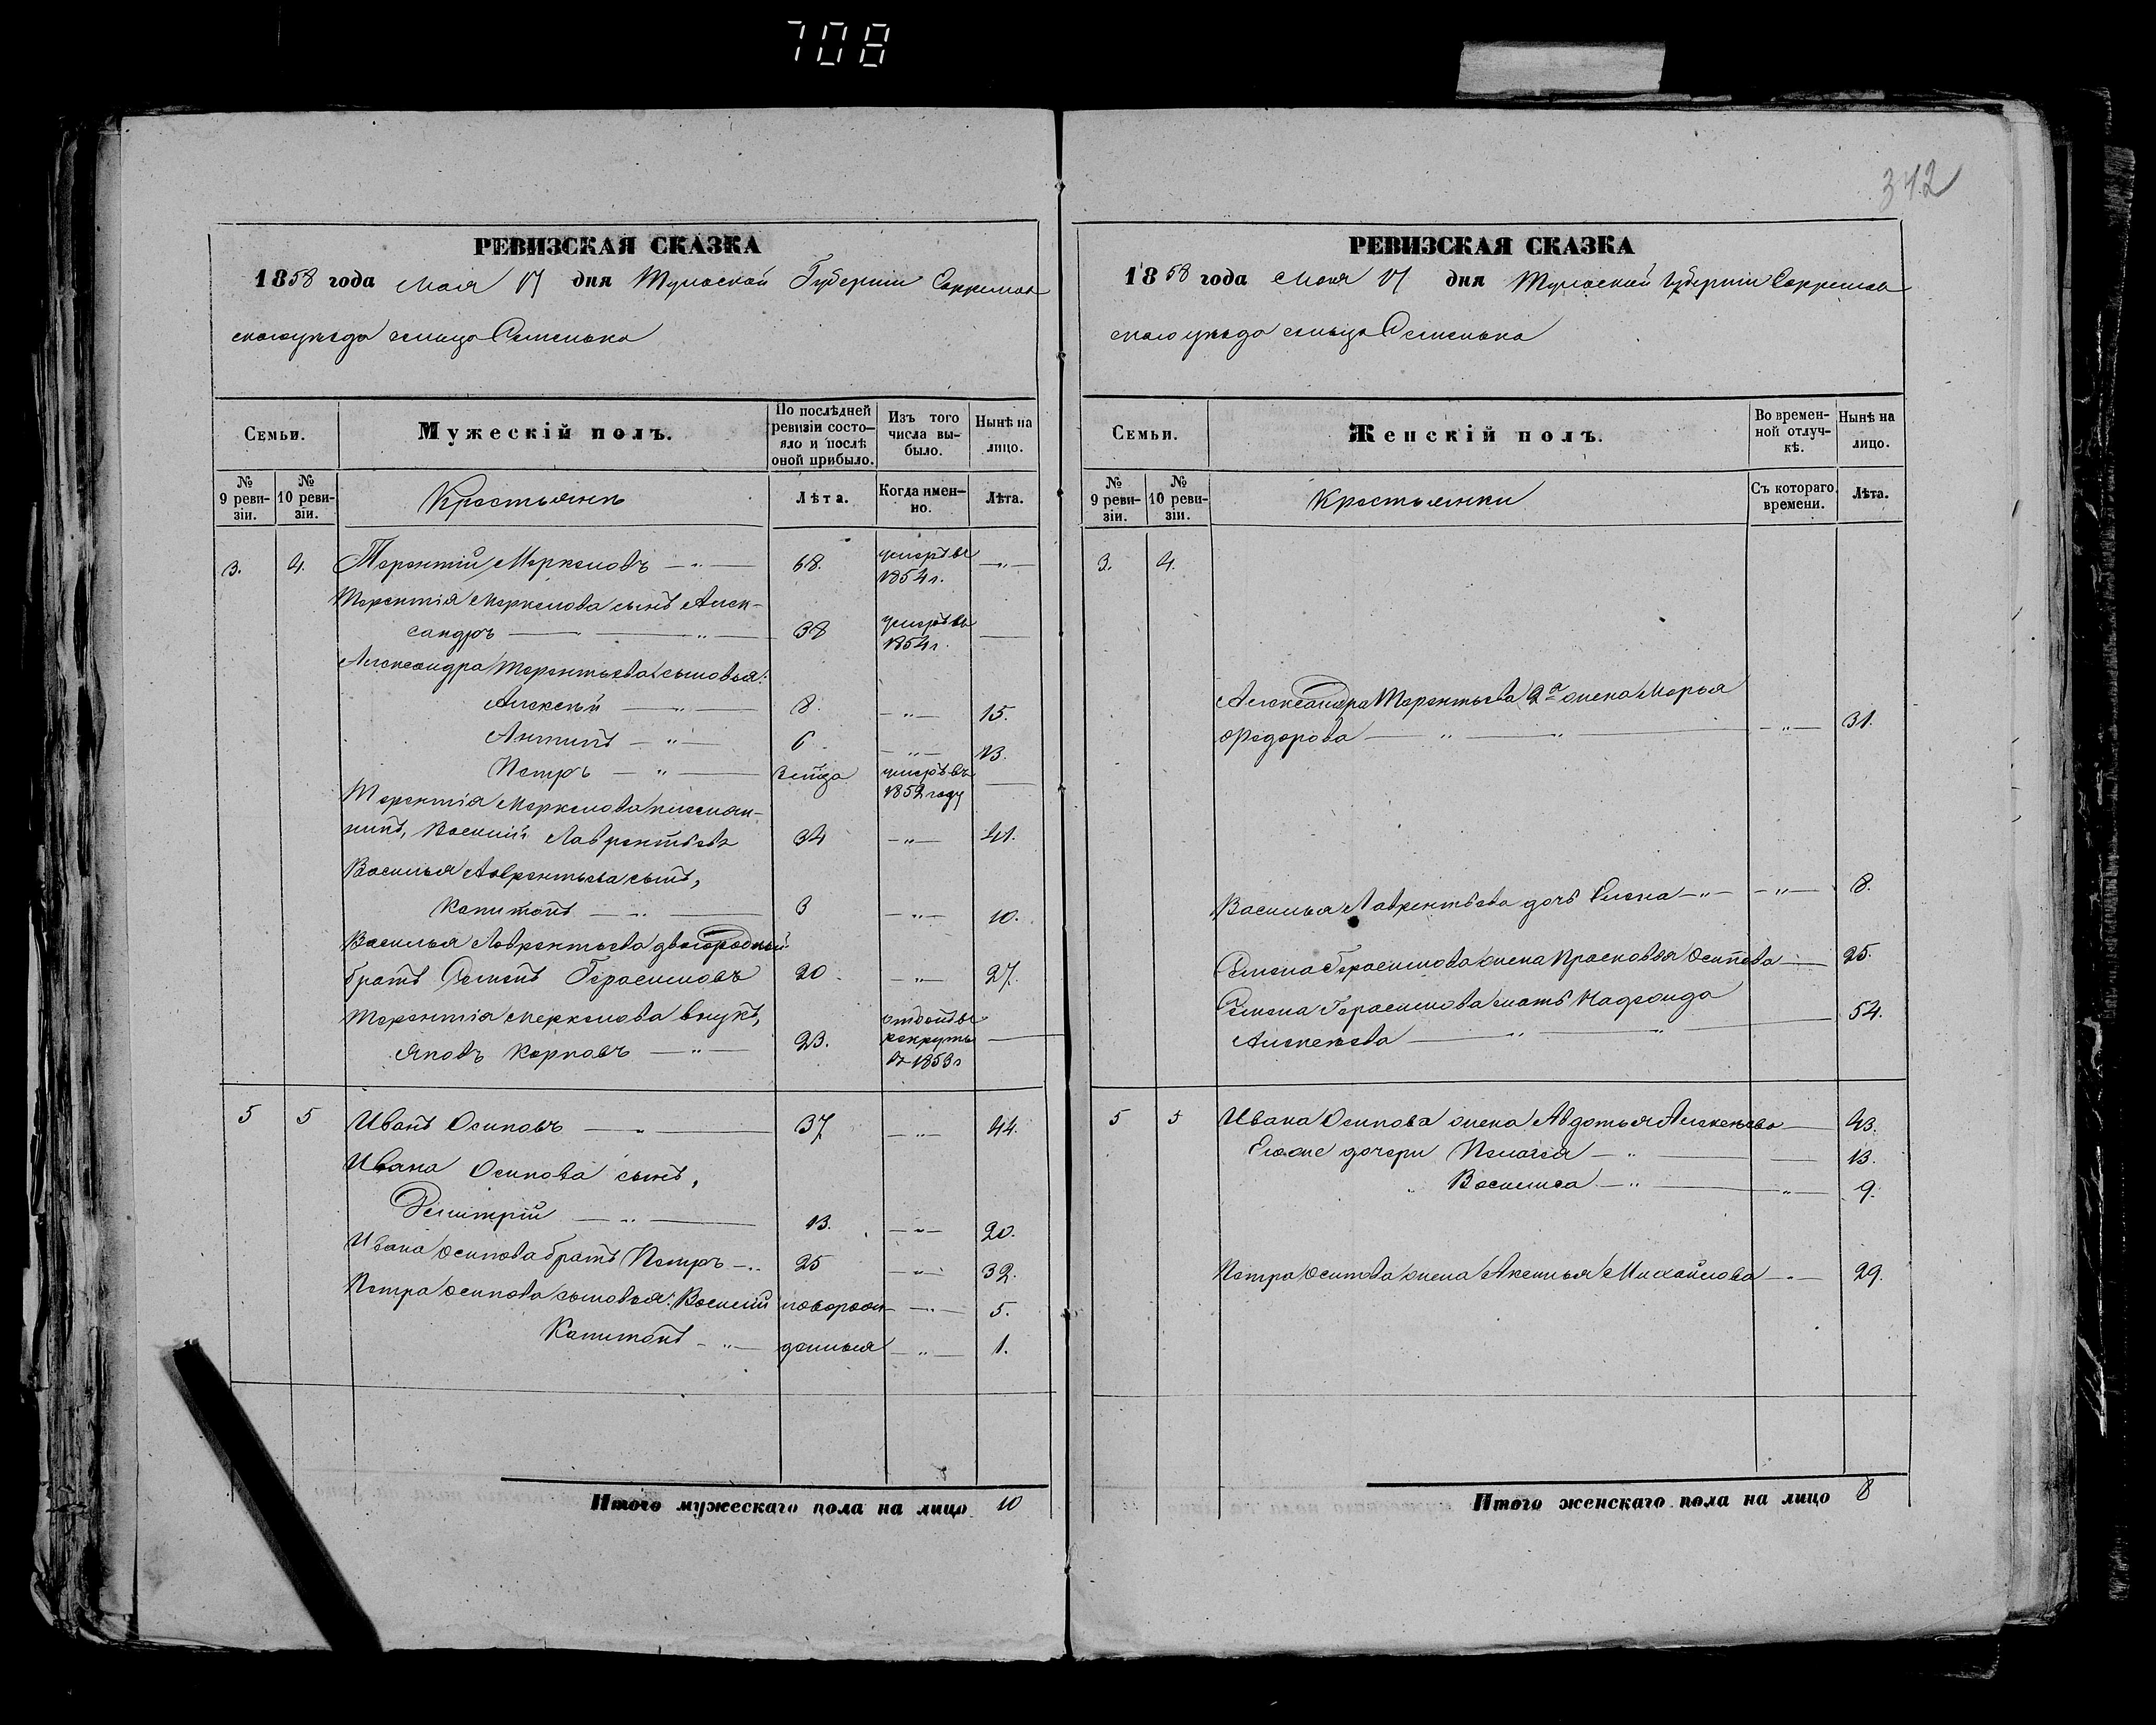 708
342
РЕВИЗСКАЯ СКАЗКА
1858 года Мая 17 дня Тульской Губернии Ефремов
скаго уѣзда сельца Семенька
Семьи.
Мужескій полъ.
По послѣдней ревизіи состояло и послѣ оной прибыло.
Изъ того числа выбыло.
Нынѣ на лицо.
№ 9 ревизіи.
№ 10 ревизіи.
Крестьянъ
Лѣта.
Когда именно.
Лѣта.
3. 4. Терентій Меркеловъ — " — 68. умеръ въ 1854 г. — " —
Терентія Меркелова сынъ Алек-
сандръ — " — 38 умеръ въ 1854 г. —
Александра Терентьева сыновья:
Алексѣй — " — 8. — " — 15.
Антипъ — " — 6. — " — 13.
Петръ — " — умеръ въ 1852 году —
Терентія Меркелова племян-
никъ, Василій Лаврентьевъ 34 — " — 41.
Василья Лаврентьева сынъ,
Капитонъ — " — 3 — " — 10.
Василья Лаврентьева двоюродный
братъ Семенъ Герасимовъ 20. — " — 27.
Терентія Меркелова внукъ,
Яковъ Карповъ — " — 23. отданъ въ рекруты в 1853 г —
5 5 Иванъ Осиповъ — " — 37 — " — 44.
Ивана Осипова сынъ,
Дмитрій — " — 13. — " — 20.
Ивана Осипова братъ Петръ — " 25 — " — 32.
Петра Осипова сыновья: Василій новорож — " — 5.
Капитонъ — " — денныя — " — 1.
Итого мужескаго пола на лицо 10
РЕВИЗСКАЯ СКАЗКА
1858 года Мая 17 дня Тульской Губерніи Ефремов
скаго уѣзда сельца Семенька
Семьи.
Женскій полъ.
Во временной отлучкѣ.
Нынѣ на лицо.
№ 9 ревизіи.
№ 10 ревизіи.
Крестьянки
Съ котораго времени.
Лѣта.
3. 4.
Александра Терентьева 2я жена Марья
Федорова — " — " — — " — 31.
Василья Лаврентьева дочь Елена — " — — " — 8.
Семена Герасимова жена Прасковья Осипова — 25.
Семена Герасимова мать
Алексѣева — " — " — 54.
5 5 Ивана Осипова жена Авдотья Алексѣева — 43.
Егоже дочери Пелагея — " — 13.
" Василиса — " — " — 9.
Петра Осипова жена Аксинья Михайлова — " — 29.
Итого женскаго пола на лицо 8